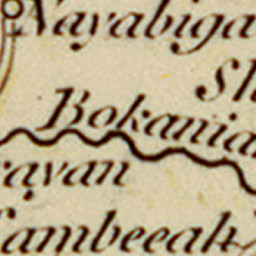 Nayabiga
Sh
Bokania
rayan
Cambeeah